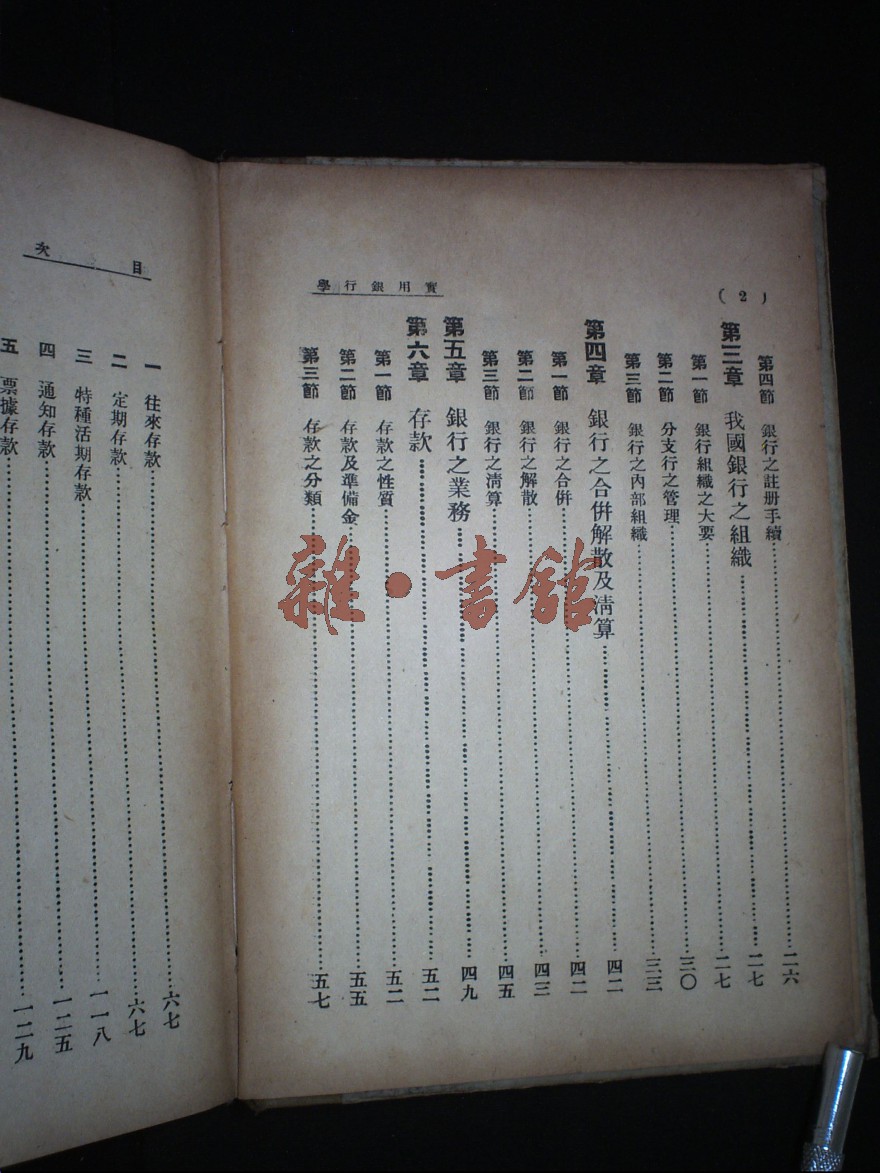 (2)
實用銀行學
第四節 銀行之註册手續……二六
第三章 我國銀行之組織……二七
第一節 銀行組織之大要……二七
第二節 分支行之管理……三〇
第三節 銀行之內部組織……三三
第四章 銀行之合併解散及淸算……四二
第一節 銀行之合併……四二
第二節 銀行之解散……四三
第三節 銀行之淸算……四五
第五章 銀行之業務……四九
第六章 存款……五二
第一節 存款之性質……五二
第二節 存款及準備金……五五
第三節 存款之分類……五七
目次
一 往來存款……六七
二 定期存款……六七
三 特種活期存款……一一八
四 通知存款……一二五
五 票據存款……一二九
雜·書館